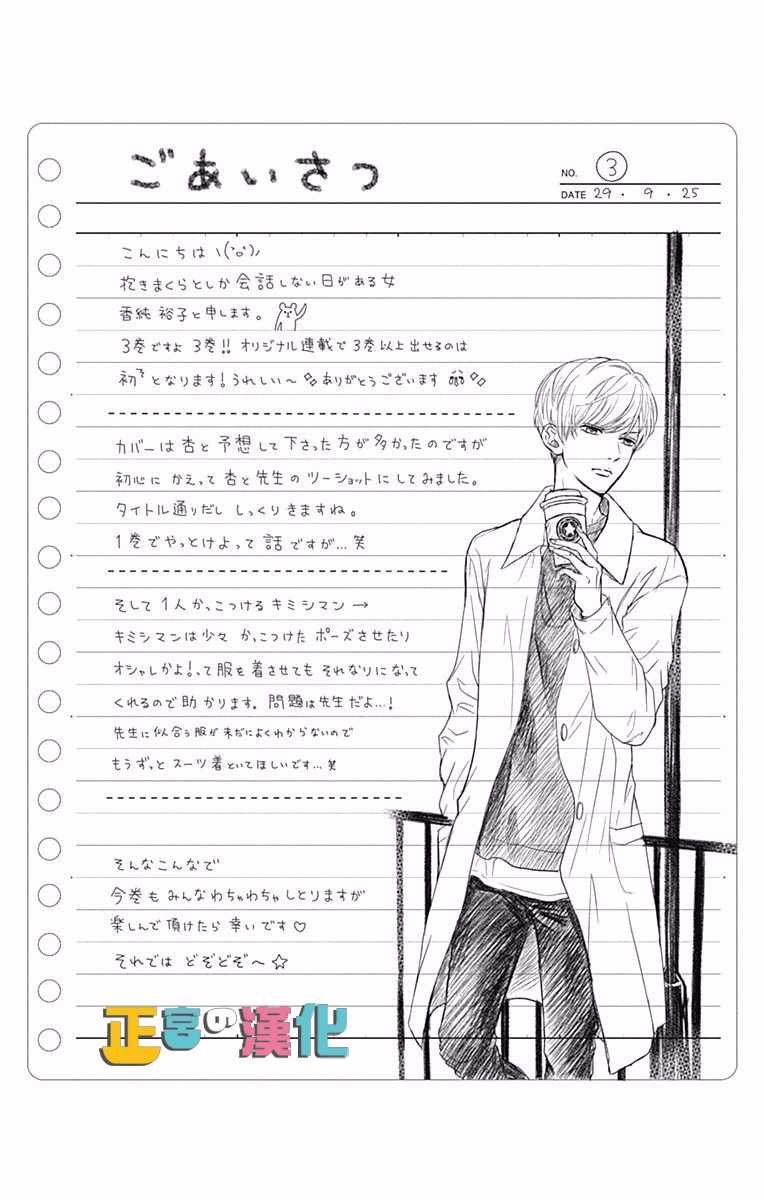 ごあいさつ
NO. 3
DATE 29・9・25
こんにちは ヽ(`o´)ノ
抱きまくらとしか会話しない日がある女
香純裕子と申します。
3巻ですよ 3巻!! オリジナル連載で3巻以上出せるのは
初となります!うれしい〜 ありがとうございます
カバーは杏と予想して下さった方が多かったのですが
初心にかえって杏と先生のツーショットにしてみました。
タイトル通りだし しっくりきますね。
1巻でやっとけよって話ですが…笑
そして1人かっこつけるキミシマン→
キミシマンは少々かっこつけたポーズさせたり
オシャレかよ!って服を着させてもそれなりになって
くれるので助かります。問題は先生だよ…!
先生に似合う服が未だによくわからないので
もうずっとスーツ着といてほしいです…笑
そんなこんなで
今巻もみんなわちゃわちゃしとりますが
楽しんで頂けたら幸いです♡
それでは どぞどぞ〜☆
正宮の漢化